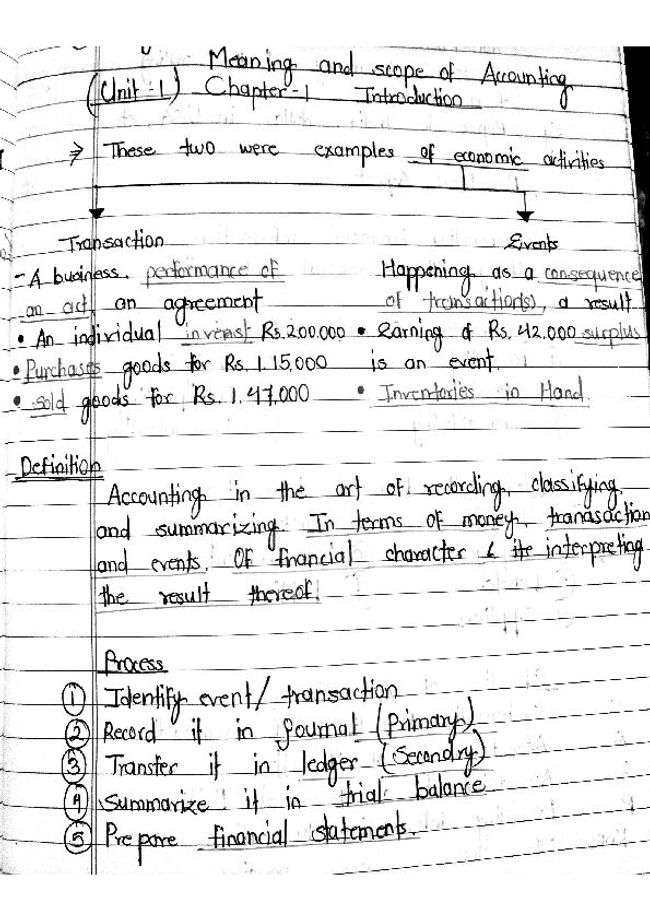 Meaning and scope of Accounting
(Unit-1) Chapter-1 Introduction
⇒ These two were examples of economic activities
Transaction
- A business, performance of
an act, an agreement
• An individual inverst Rs.200,000
• Purchases goods for Rs. 1,15,000
• Sold goods for Rs. 1,47,000
Events
Happening as a consequence
of transaction(s), a result
• Earning of Rs. 42,000 surplus
is an event.
• Inventories in Hand
Definition
Accounting in the art of recording, classifying,
and summarizing. In terms of money, tranasaction
and events. Of financial character & its interpreting
the result thereof.
Process
① Identify event/ transaction
② Record it in Journal (Primary)
③ Transfer it in ledger (Secondry)
④ Summarize it in trial balance
⑤ Prepare financial statements.